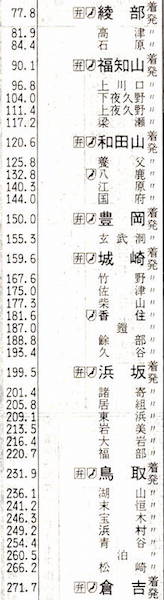 77.8 弁 綾部 着発
81.9 高津 〃
84.4 石原 〃
90.1 弁 福知山 着発
96.8 上川口 〃
104.0 下夜久野 〃
111.4 上夜久野 〃
117.2 梁瀬 〃
120.6 弁 和田山 着発
125.8 養父 〃
132.8 八鹿 〃
140.3 江原 〃
144.0 国府 〃
150.0 弁 豊岡 着発
155.3 玄武洞 〃
159.6 弁 城崎 着発
167.6 竹野 〃
175.9 佐津 〃
177.3 柴山 〃
181.6 香住 〃
187.0 鎧 〃
188.8 餘部 〃
193.4 久谷 〃
199.5 弁 浜坂 着発
201.4 諸寄 〃
205.8 居組 〃
209.3 東浜 〃
213.5 岩美 〃
216.4 大岩 〃
220.7 福部 〃
231.9 弁 鳥取 着発
236.1 湖山 〃
241.2 末恒 〃
246.3 宝木 〃
249.2 浜村 〃
254.4 青谷 〃
260.5 泊 〃
266.2 松崎 〃
271.7 弁 倉吉 着発